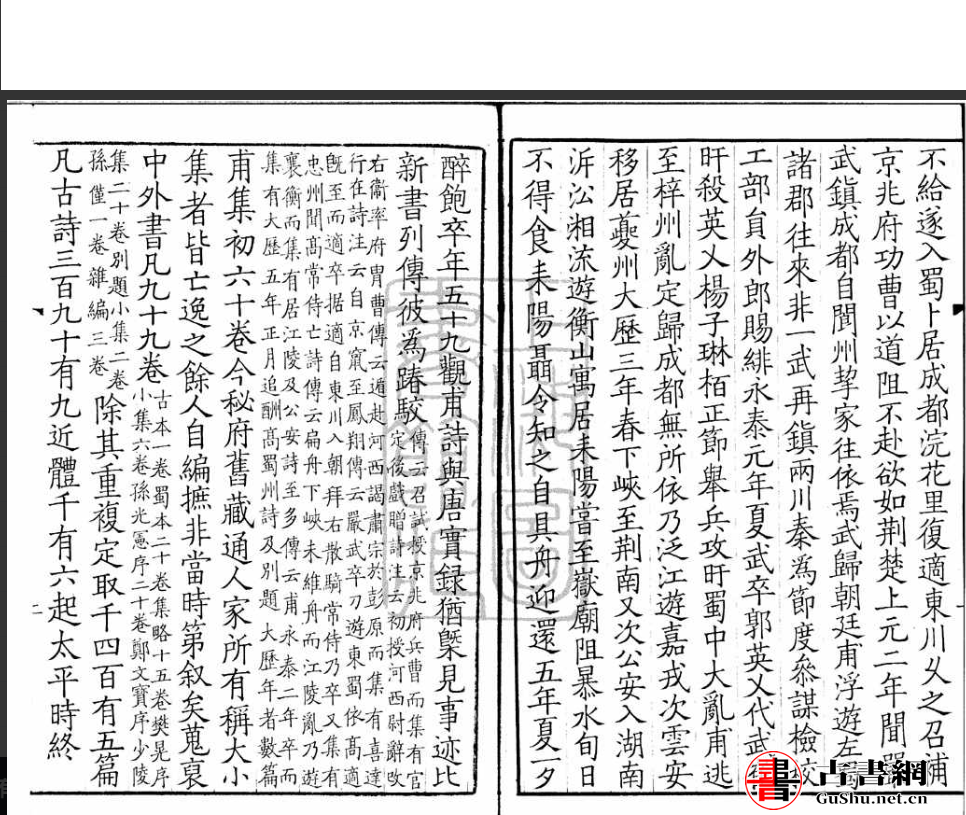 不給遂入蜀卜居成都浣花里復適東川乆之召補
京兆府功曹以道阻不赴欲如荆楚上元二年聞嚴
武鎮成都自閬州挈家往依焉武歸朝廷甫浮遊左蜀
諸郡往來非一武再鎮兩川奏爲節度叅謀檢校
工部貟外郎賜緋永泰元年夏武卒郭英乂代武
旰殺英乂楊子琳栢正節舉兵攻旰蜀中大亂甫逃
至梓州亂定歸成都無所依乃泛江遊嘉戎次雲安
移居夔州大歷三年春下峽至荆南又次公安入湖南
泝沿湘流遊衡山寓居耒陽嘗至嶽廟阻暴水旬日
不得食耒陽聶令知之自具舟迎還五年夏一夕
醉飽卒年五十九觀甫詩與唐實録猶槩見事迹比
新書列傳彼爲踳駮
傳云召試授京兆府兵曹而集有官
定後戲贈詩注云初授河西尉辭改
右衞率府胄曹傳云遁赴河西謁肅宗於彭原而集有喜達
行在詩注云自京竄至鳳翔傳云嚴武卒乃遊東蜀依髙適
旣至而適卒据適自東川入朝拜右散騎常侍乃卒又集有
忠州聞髙常侍亡詩傳云扁舟下峽未維舟而江陵亂乃遊
襄衡而集有居江陵及公安詩至多傳云甫永泰二年卒而
集有大歷五年正月追酬髙蜀州詩及别題大歷年者數篇
甫集初六十卷今秘府舊藏通人家所有稱大小
集者皆亡逸之餘人自編摭非當時第叙矣蒐裒
中外書凡九十九卷
古本二卷蜀本二十卷集略十五卷樊晃序
小集六卷孫光憲序二十卷鄭文寶序少陵
集二十卷别題小集二卷
孫僅一卷雜編三卷
除其重複定取千四百有五篇
凡古詩三百九十有九近體千有六起太平時終
二
古書網
GuShu.net.cn